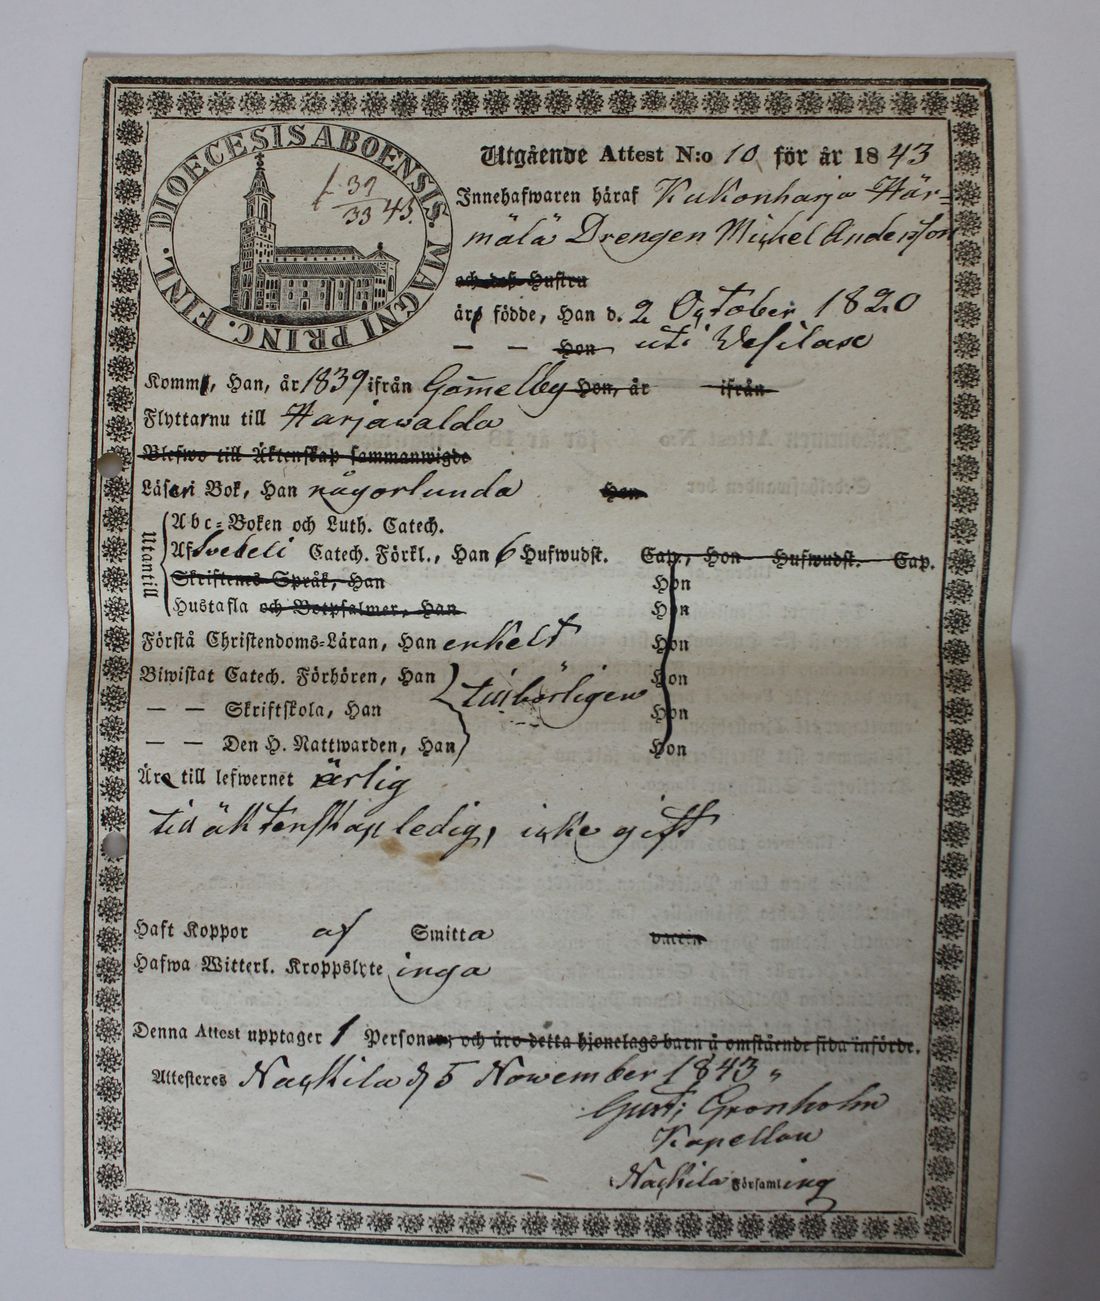 DIOECESIS ABOENSIS. MAGNI PRINC. FINL.
f. 39
33 43.
Utgående Attest N:o 10 för år 1843
Innehafwaren häraf Kukonharja Här=
mälä Drengen Michel Andersson
och deß Hustru
är födde, Han d. 2 October 1820
— — Hon uti Wesilax
Komm, Han, år 1839 ifrån Gam̄elby Hon, år ifrån
Flyttar nu till Harjawalda
Blefwo till Äktenskap sammanwigde
Läser i Bok, Han någorlunda Hon
Utantill
Abc=Boken och Luth. Catech.
Af Svebeli Catech. Förkl., Han 6 Hufwudst. Cap., Hon Hufwudst. Cap.
Skriftenes Språk, Han Hon
Hustafla och Botpsalmer, Han Hon
Förstå Christendoms=Läran, Han enkelt Hon
Biwistat Catech. Förhören, Han Hon
tillbörligen
— — Skriftskola, Han Hon
— — Den H. Nattwarden, Han Hon
Är till lefwernet ärlig
till äktenskap ledig, icke gift
Haft Koppor af Smitta vaccin
Hafwa Witterl. Kroppslyte inga
Denna Attest upptager 1 Personer; och äro detta hjonelags barn å omstående sida införde.
Attesteres Nackila d 5 November 1843
Gust: Gronholm
Kapellan
Nackila Församling